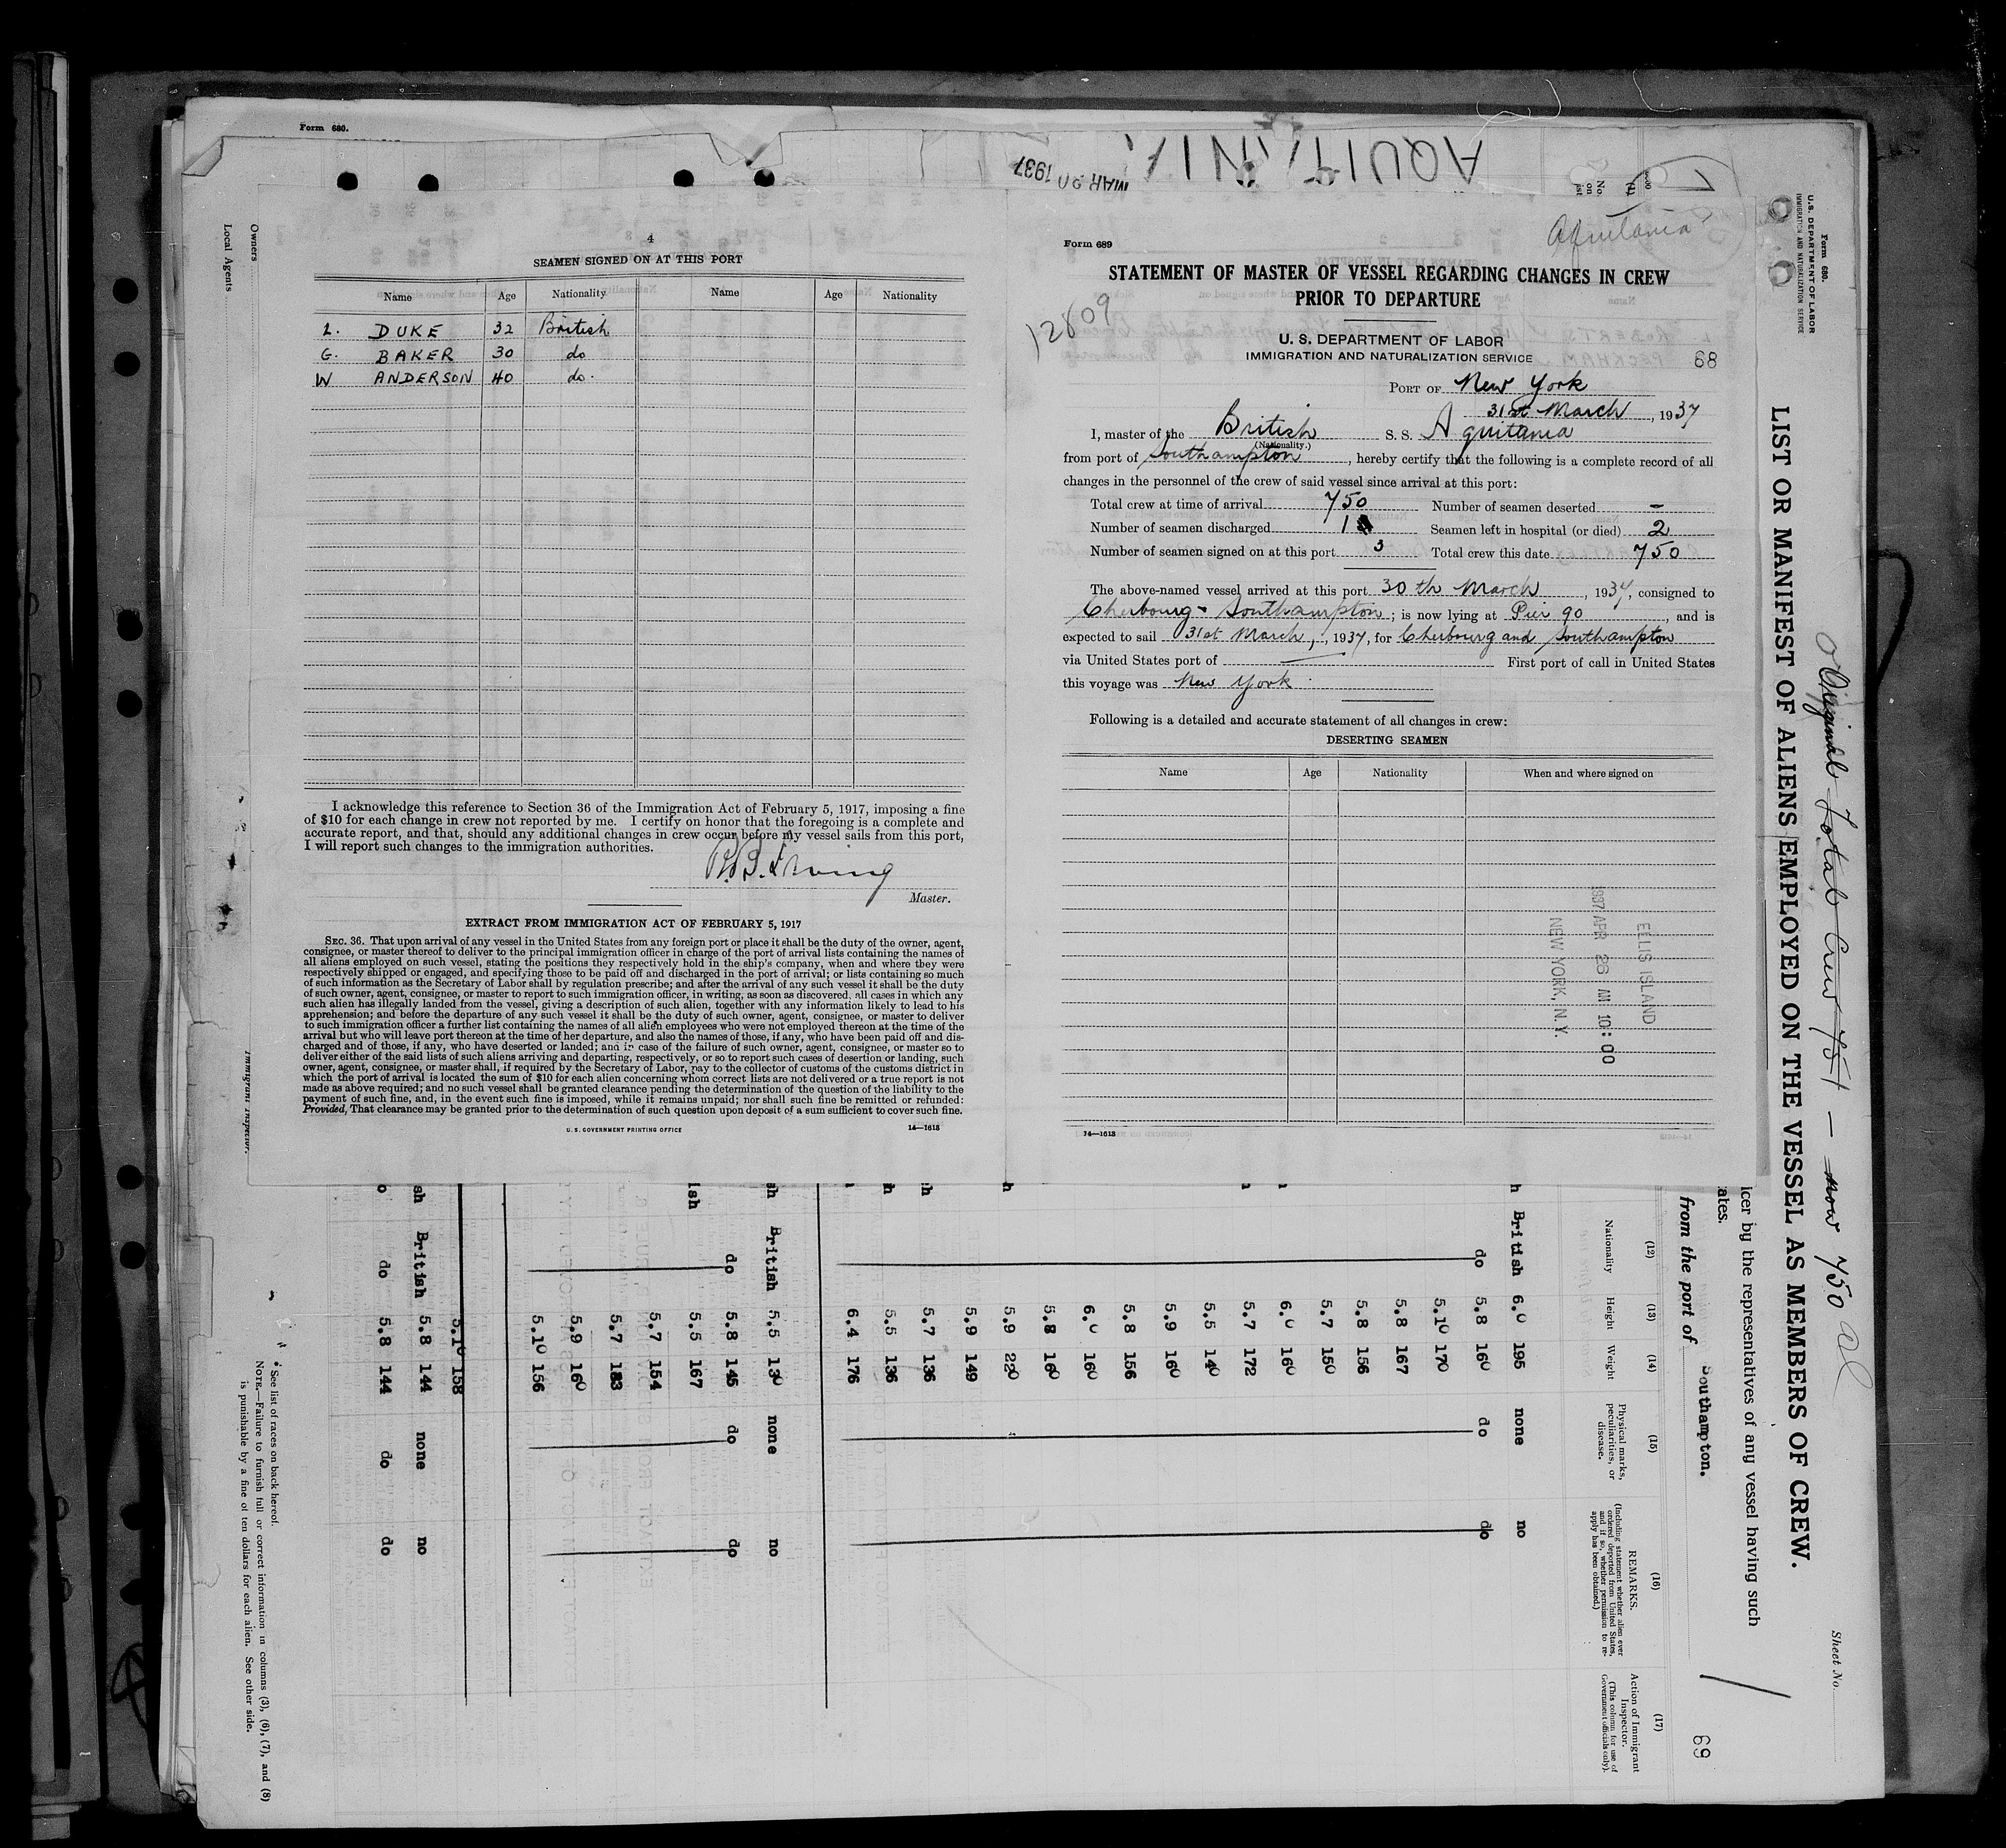 Form 680.
AQUITANIA
MAR 30 1937
Owners
Local Agents
Immigrant Inspector.
4
SEAMEN SIGNED ON AT THIS PORT
Name Age Nationality Name Age Nationality
L. DUKE 32 British
G. BAKER 30 do
W ANDERSON 40 do.
I acknowledge this reference to Section 36 of the Immigration Act of February 5, 1917, imposing a fine
of $10 for each change in crew not reported by me. I certify on honor that the foregoing is a complete and
accurate report, and that, should any additional changes in crew occur before my vessel sails from this port,
I will report such changes to the immigration authorities.
R.B. Irving
Master.
EXTRACT FROM IMMIGRATION ACT OF FEBRUARY 5, 1917
SEC. 36. That upon arrival of any vessel in the United States from any foreign port or place it shall be the duty of the owner, agent,
consignee, or master thereof to deliver to the principal immigration officer in charge of the port of arrival lists containing the names of
all aliens employed on such vessel, stating the positions they respectively hold in the ship's company, when and where they were
respectively shipped or engaged, and specifying those to be paid off and discharged in the port of arrival; or lists containing so much
of such information as the Secretary of Labor shall by regulation prescribe; and after the arrival of any such vessel it shall be the duty
of such owner, agent, consignee, or master to report to such immigration officer, in writing, as soon as discovered, all cases in which any
such alien has illegally landed from the vessel, giving a description of such alien, together with any information likely to lead to his
apprehension; and before the departure of any such vessel it shall be the duty of such owner, agent, consignee, or master to deliver
to such immigration officer a further list containing the names of all alien employees who were not employed thereon at the time of the
arrival but who will leave port thereon at the time of her departure, and also the names of those, if any, who have been paid off and dis-
charged and of those, if any, who have deserted or landed; and in case of the failure of such owner, agent, consignee, or master so to
deliver either of the said lists of such aliens arriving and departing, respectively, or so to report such cases of desertion or landing, such
owner, agent, consignee, or master shall, if required by the Secretary of Labor, pay to the collector of customs of the customs district in
which the port of arrival is located the sum of $10 for each alien concerning whom correct lists are not delivered or a true report is not
made as above required; and no such vessel shall be granted clearance pending the determination of the question of the liability to the
payment of such fine, and, in the event such fine is imposed, while it remains unpaid; nor shall such fine be remitted or refunded:
Provided, That clearance may be granted prior to the determination of such question upon deposit of a sum sufficient to cover such fine.
U. S. GOVERNMENT PRINTING OFFICE 14—1613
Aquitania
Form 689
STATEMENT OF MASTER OF VESSEL REGARDING CHANGES IN CREW
PRIOR TO DEPARTURE
12809
U. S. DEPARTMENT OF LABOR
IMMIGRATION AND NATURALIZATION SERVICE
68
PORT OF New York
31st March, 1937
I, master of the British S. S. Aquitania
(Nationality.)
from port of Southampton, hereby certify that the following is a complete record of all
changes in the personnel of the crew of said vessel since arrival at this port:
Total crew at time of arrival 750 Number of seamen deserted -
Number of seamen discharged 1 Seamen left in hospital (or died) 2
Number of seamen signed on at this port 3 Total crew this date 750
The above-named vessel arrived at this port 30th March, 1937, consigned to
Cherbourg - Southampton; is now lying at Pier 90, and is
expected to sail 31st March, 1937, for Cherbourg and Southampton
via United States port of — First port of call in United States
this voyage was New York.
Following is a detailed and accurate statement of all changes in crew:
DESERTING SEAMEN
Name Age Nationality When and where signed on
ELLIS ISLAND
1937 APR 26 AM 10:00
NEW YORK, N.Y.
14—1613
Form 680.
U. S. DEPARTMENT OF LABOR
IMMIGRATION AND NATURALIZATION SERVICE
Original Total Crew 751 - now 750
Sheet No.
LIST OR MANIFEST OF ALIENS EMPLOYED ON THE VESSEL AS MEMBERS OF CREW.
icer by the representatives of any vessel having such
ates.
from the port of Southampton.
69
(12) (13) (14) (15) (16) (17)
Nationality Height Weight Physical marks, peculiarities, or disease. REMARKS. (Including statement whether alien ever ordered deported from United States, and if so, whether permission to re-apply has been obtained.) Action of Immigrant Inspector. (This column for use of Government officials only).
h British 6.0 195 none no
do 5.8 160 do do
5.10 170
5.8 167
5.8 156
5.7 150
6.0 160
5.7 172
5.5 140
5.9 160
5.8 156
6.0 160
5.8 160
5.9 220
5.9 149
5.7 136
5.5 136
6.4 176
sh British 5.5 130 none no
do 5.8 145 do do
ish 5.5 167
5.7 154
5.7 183
5.9 160
5.10 156
5.10 158
sh British 5.8 144 none no
o do 5.8 144 do do
* See list of races on back hereof.
NOTE.—Failure to furnish full or correct information in columns (3), (6), (7), and (8)
is punishable by a fine of ten dollars for each alien. See other side.